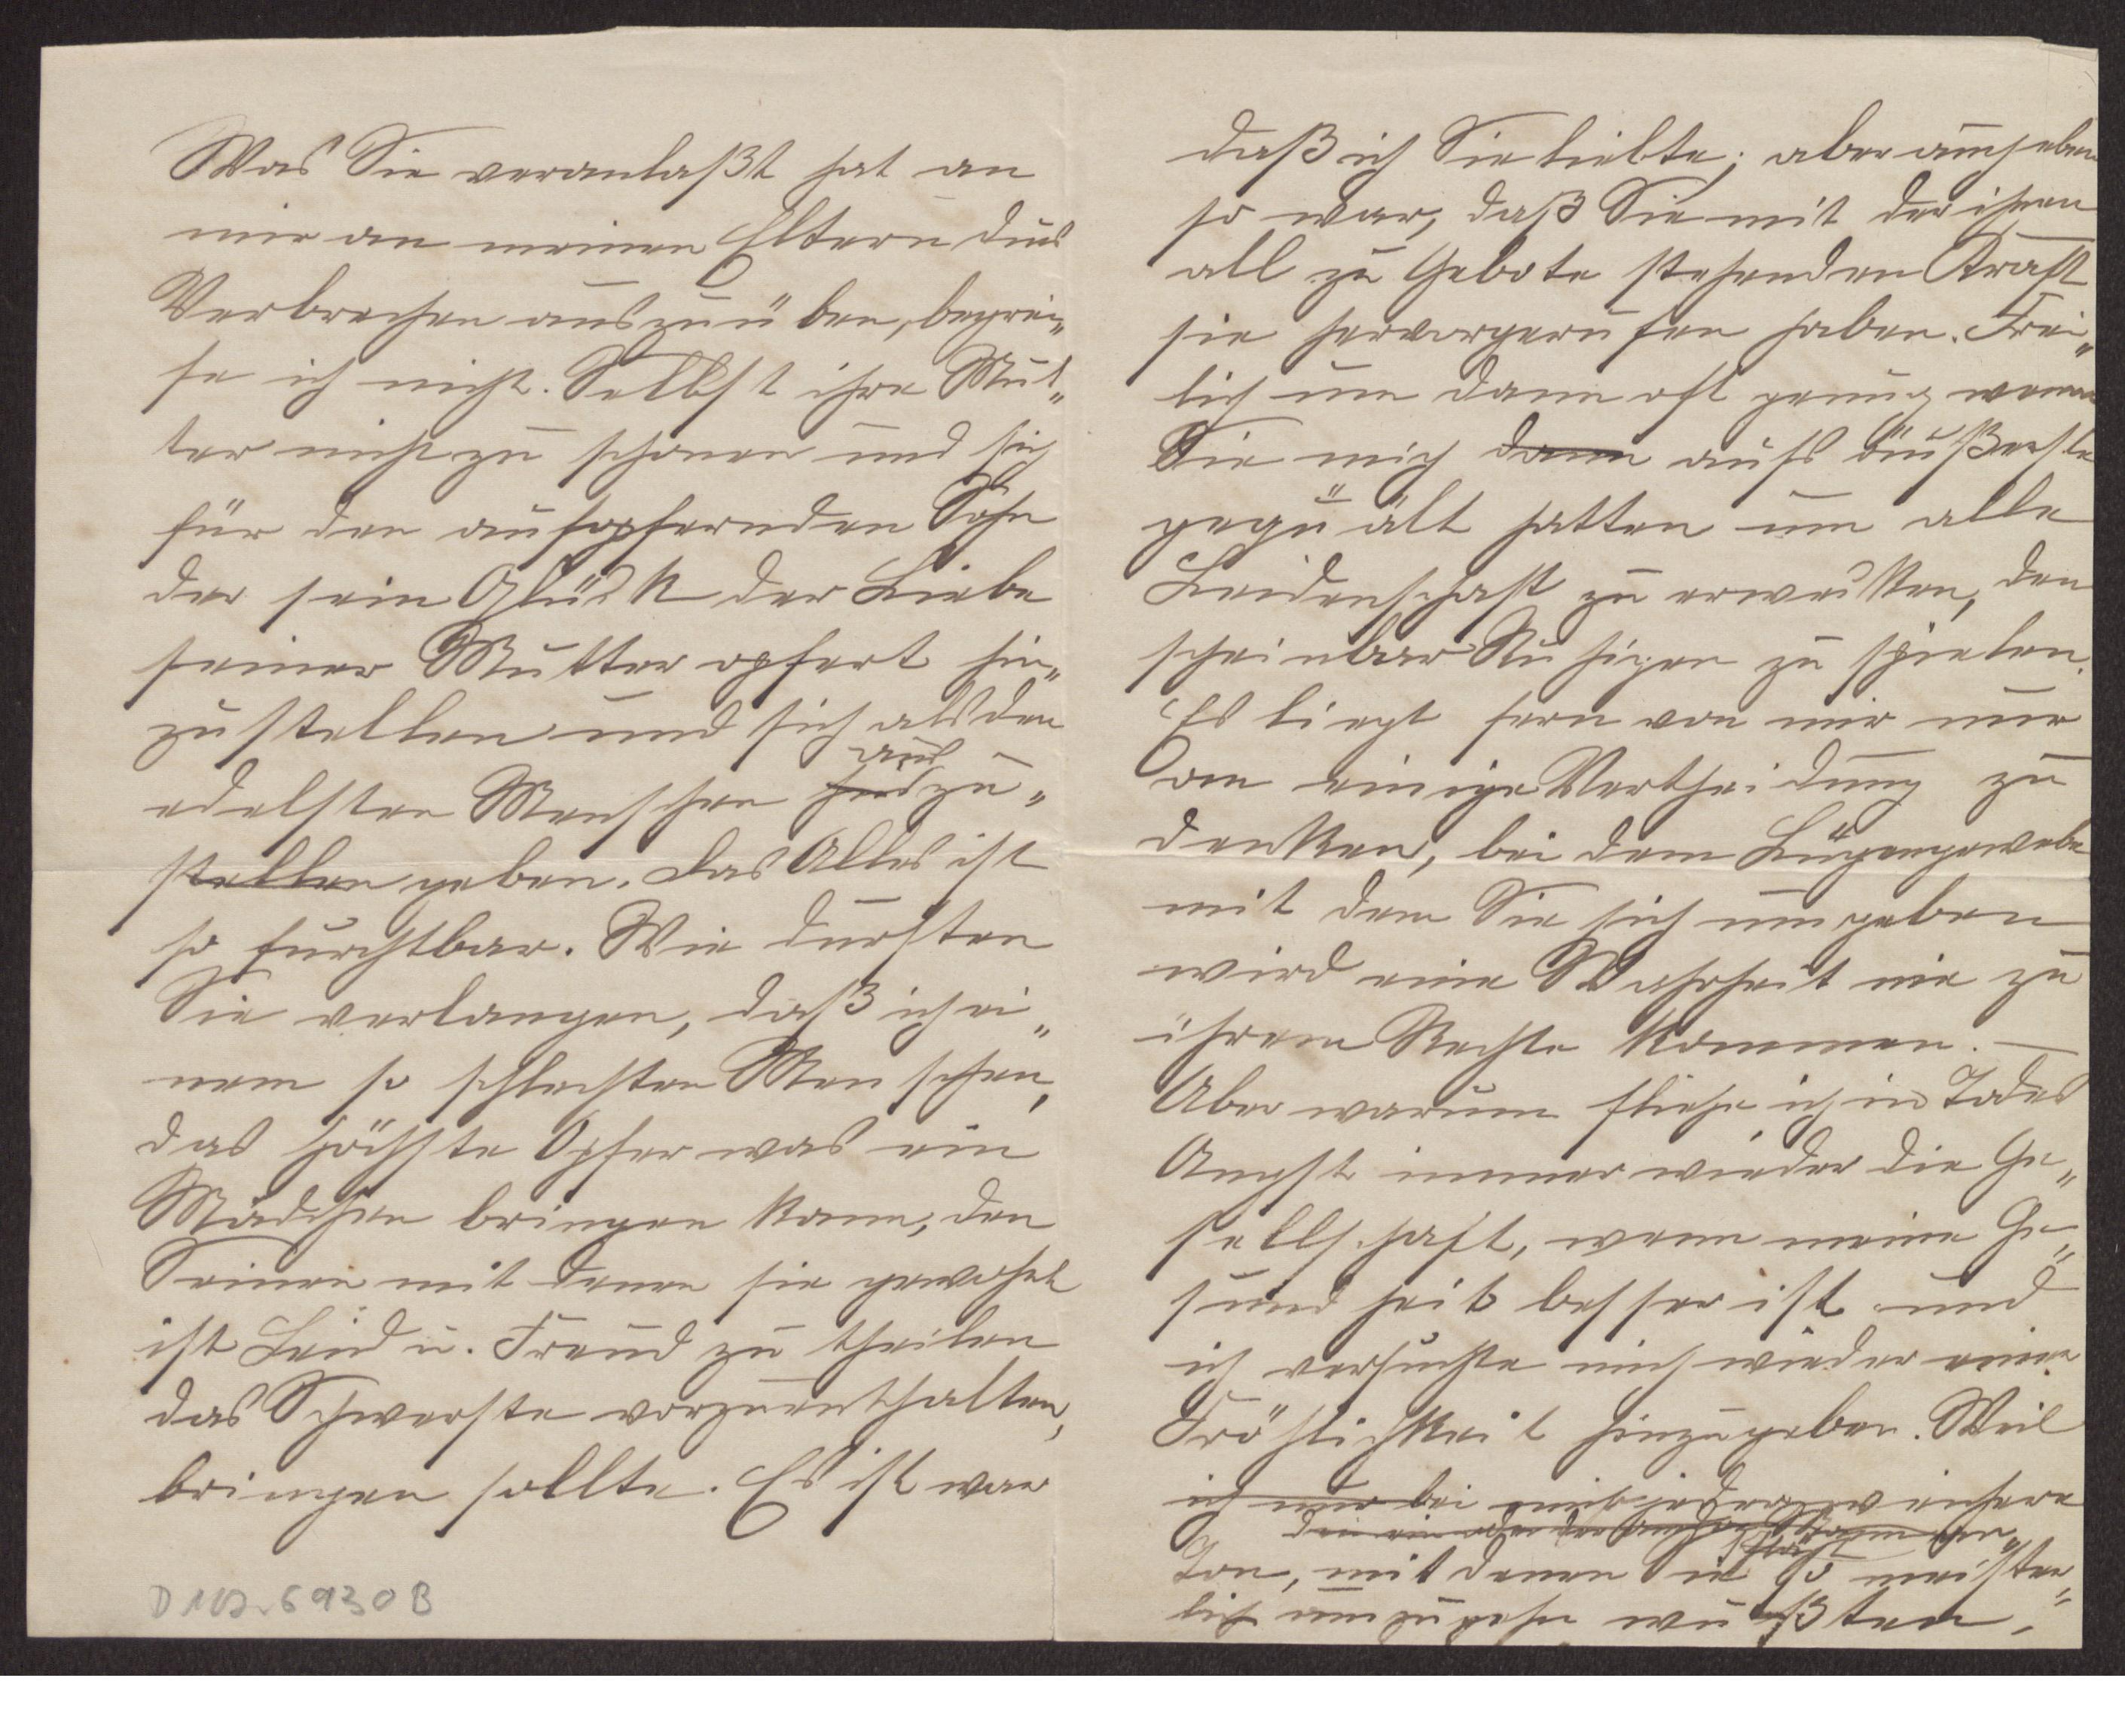 Was Sie veranlaßt hat an
mir an meinen Eltern das
Verbrechen auszuüben, begrei„
fe ich nicht. Selbst ihre Mut„
ter nicht zu schonen und sich
für den aufopfernden Sohn
der sein Glück der Liebe
seiner Mutter opfert hin„
zustellen und sich als den
aus
edelsten Menschen hinzu„
stellen geben. Das Alles ist
so furchtbar. Wie durften
Sie verlangen, daß ich ei„
nem so schlechten Menschen,
das höchste Opfer was ein
Mädchen bringen kann, den
Seinen mit denen sie gewohnt
ist Leid u. Freud zu theilen
das Schwerste vorzuenthalten,
bringen sollte. Es ist war
D 102.6930 B
daß ich Sie liebte; aber auch eben
so war, daß Sie mit der ihnen
all zu Gebote stehenden Kraft
sie hervorgerufen haben. Frei„
lich um dann oft genug wenn
Sie mich dann aufs äußerste
gequält hatten um alle
Leidenschaft zu erwecken, den
scheinbar Ruhigen zu spielen.
Es liegt fern von mir nur
an einige Vertheidung zu
denken, bei dem Lügengewebe
mit dem Sie sich umgeben
wird eine Wahrheit nie zu
ihrem Rechte kommen. —
Aber warum fliehe ich in Todes
Angst immer wieder die Ge„
sellschaft, wenn meine Ge„
sundheit besser ist und
ich versuchte mich wieder einer
Fröhlichkeit hinzugeben. Weil
ich nur bei
Ton, mit denen Sie so meister„
lich umzugehn wußten,